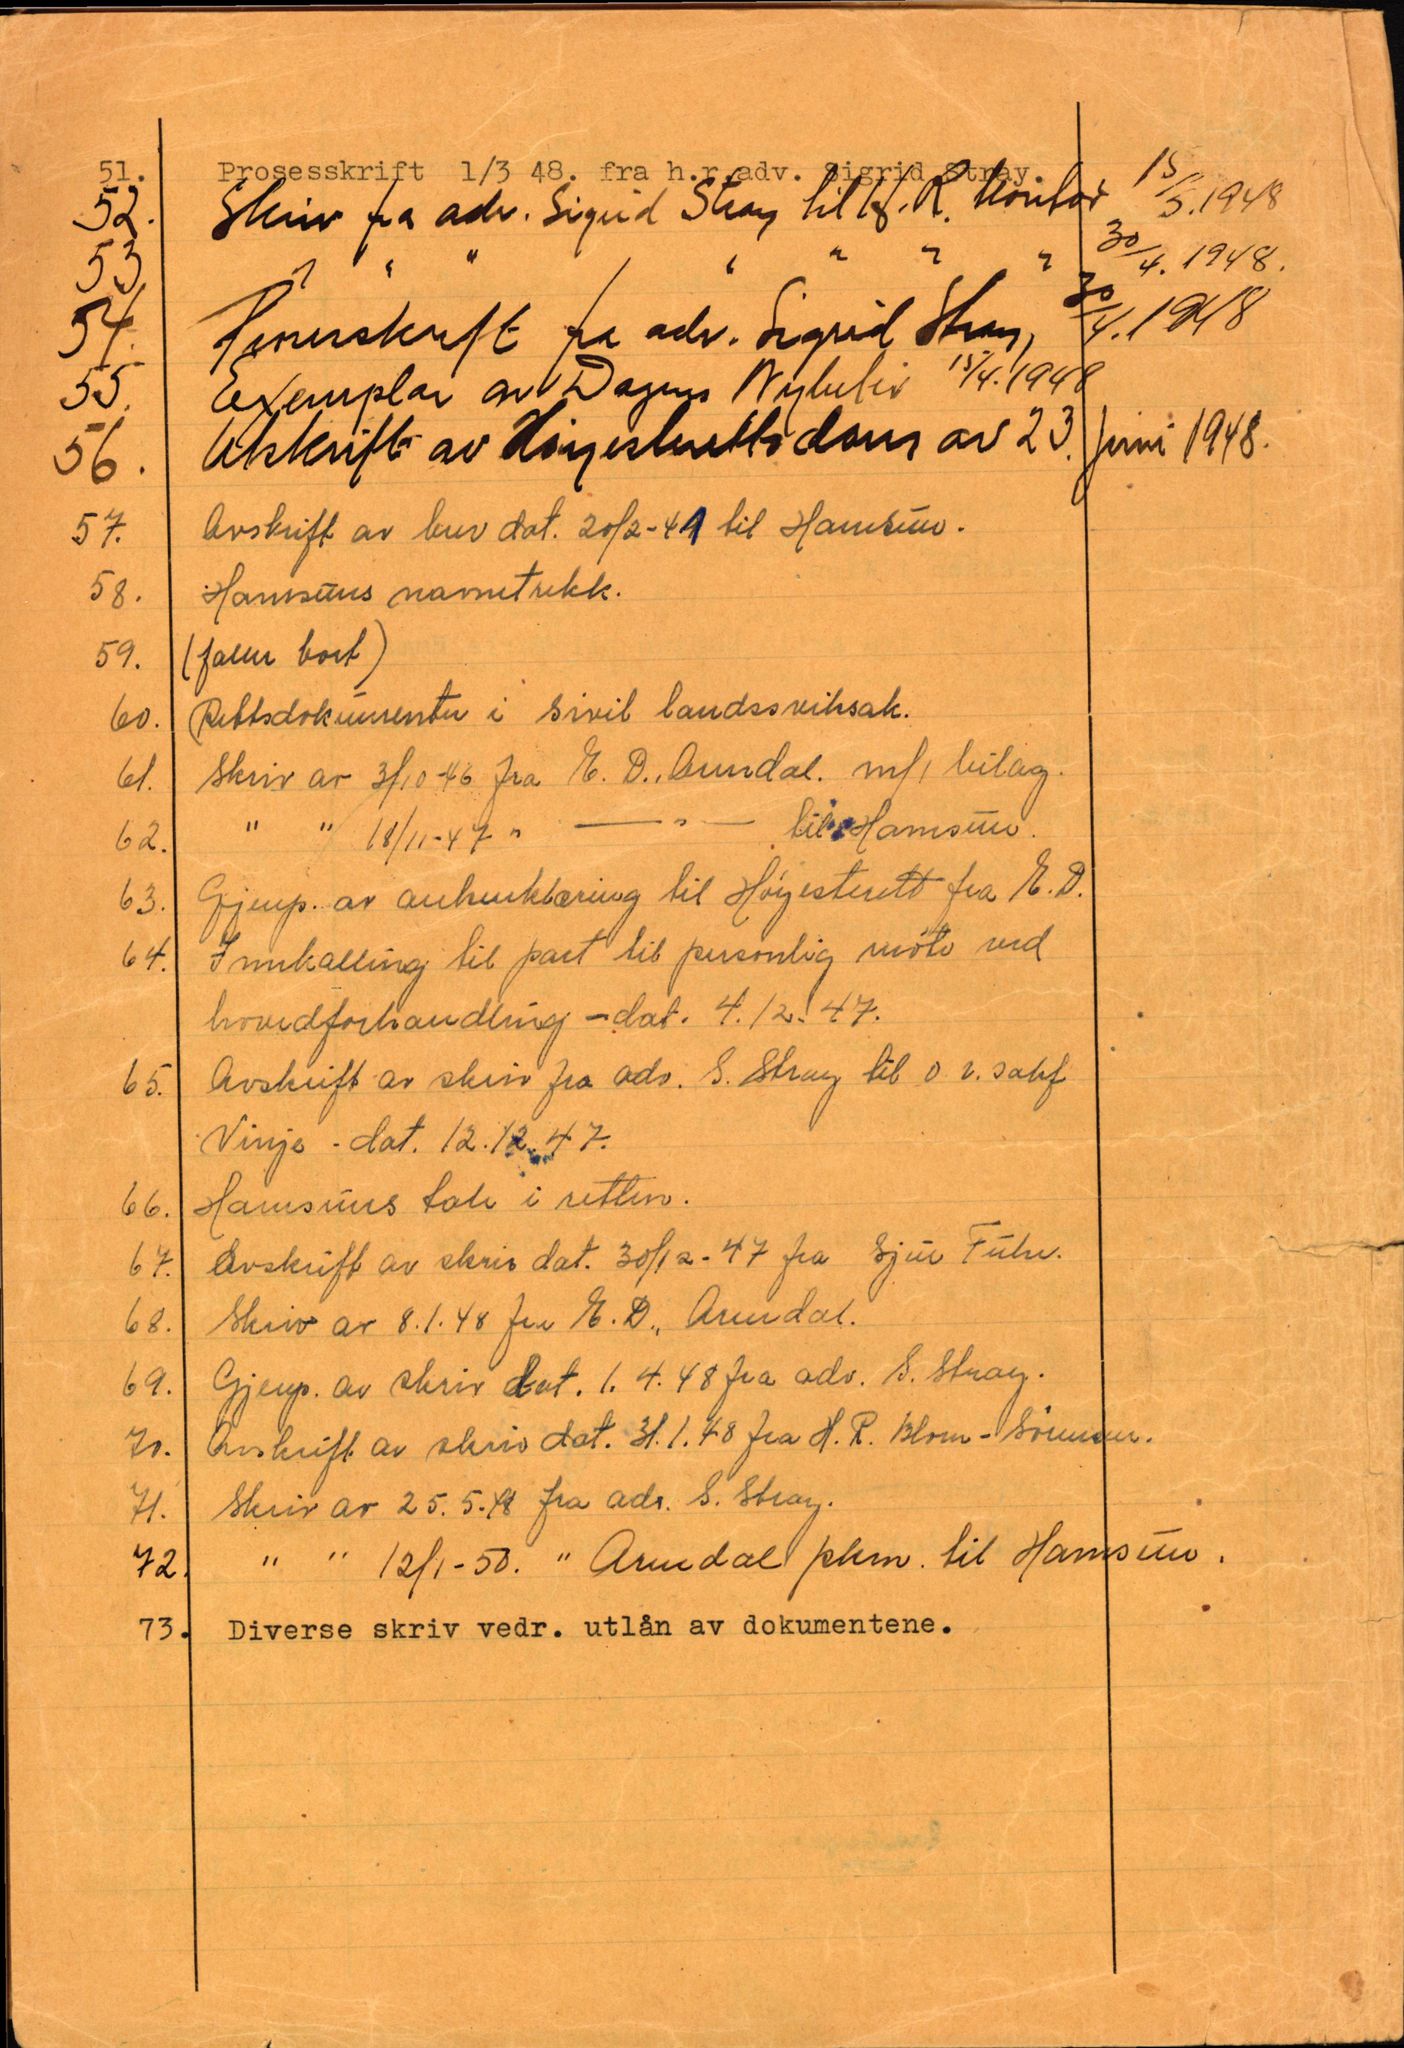 51. Prosesskrift 1/3 48. fra h.r.adv. Sigrid Stray.
52. Skriv fra adv. Sigrid Stray til H. R. Kontor 15/5.1948
53 " " " " " " " 30/4. 1948.
54. Prosesskrift fra adv. Sigrid Stray, 30/4.1948
55. Exemplar av Dagens Nyheter 15/4.1948
56. Utskrift av Höyesterettsdom av 23. juni 1948.
57. Avskrift av brev dat. 20/2-41 til Hamsun.
58. Hamsuns navnetrekk.
59. (faller bort)
60. Rettsdokumenter i sivil landssviksak.
61. Skriv av 3/10-46 fra E. D., Arendal. m/1 bilag.
62. " " 18/11-47 " — " — til Hamsun.
63. Gjenp. av ankeerklæring til Höyesterett fra E. D.
64. Innkalling til part til personlig möte ved
hovedforhandling - dat. 4.12.47.
65. Avskrift av skriv fra adv. S. Stray til o.r.sakf
Vinje - dat. 12.12.47.
66. Hamsuns tale i retten.
67. Avskrift av skriv dat. 30/12-47 fra Sjur Fuhr.
68. Skriv av 8.1.48 fra E. D., Arendal.
69. Gjenp. av skriv dat. 1. 4. 48 fra adv. S. Stray.
70. Avskrift av skriv dat. 31.1.48 fra H. R. Blom-Sörensen.
71. Skriv av 25.5.48 fra adv. S. Stray.
72. " " 12/1-50. " Arendal pkm. til Hamsun.
73. Diverse skriv vedr. utlån av dokumentene.